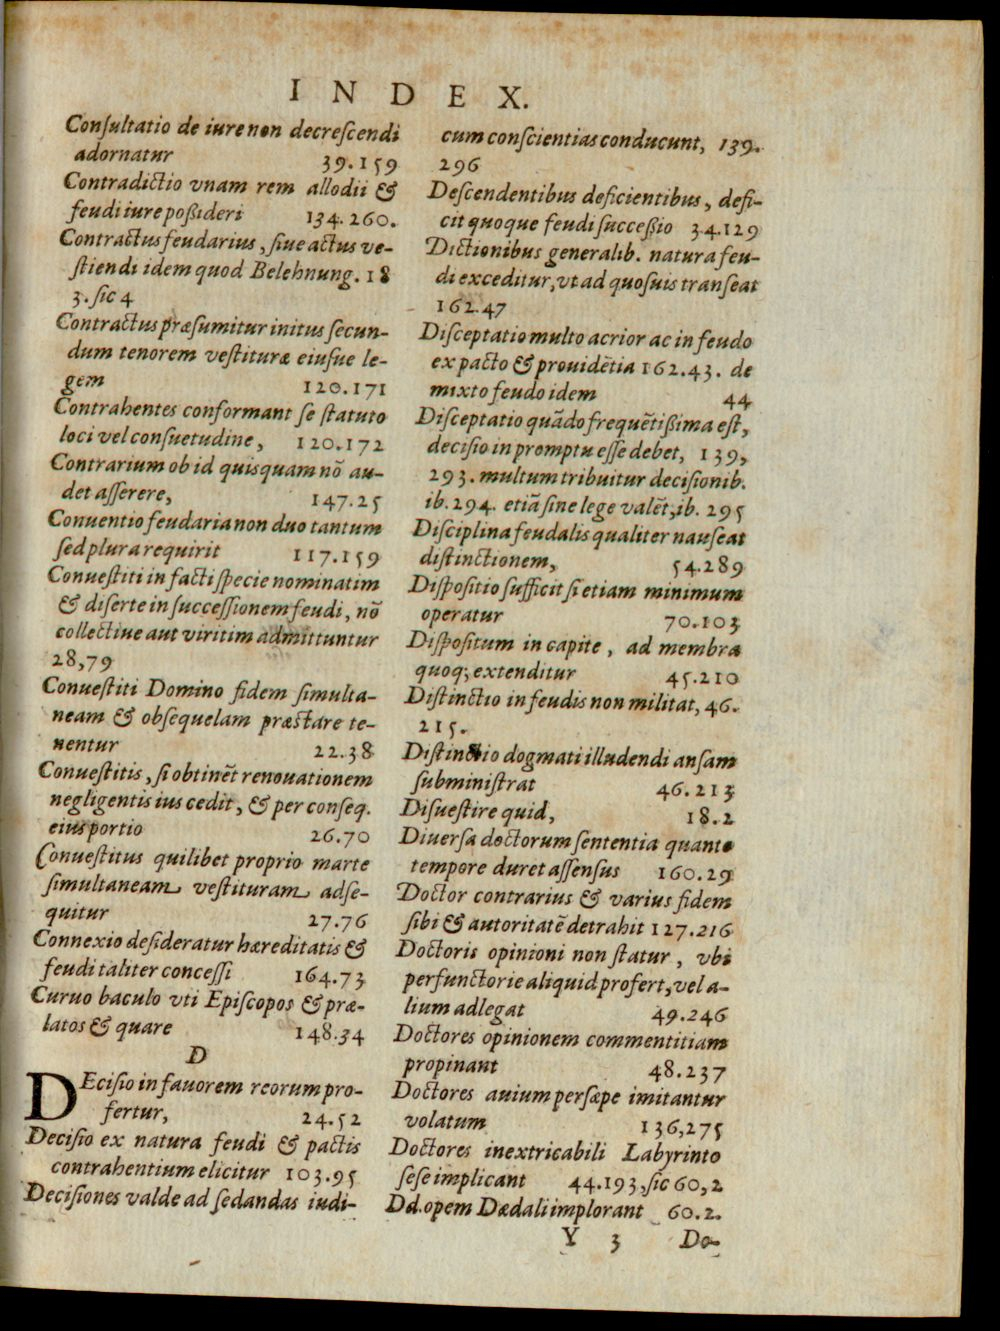 INDEX.
Conſultatio de iure non decreſcendi
adornatur 39.159
Contradictio vnam rem allodii &
feudi iure poßideri 134.260.
Contractus feudarius, ſiue actus ve-
ſtiendi idem quod Belehnung. 18
3. ſic 4
Contractus præſumitur initus ſecun-
dum tenorem veſtituræ eiuſue le-
gem 120.171
Contrahentes conformant ſe ſtatuto
loci vel conſuetudine, 120.172
Contrarium ob id quisquam nō au-
det aſſerere, 147.25
Conuentio feudaria non duo tantum
ſed plura requirit 117.159
Conueſtiti in facti ſpecie nominatim
& diſerte in ſucceſſionem feudi, nō
collectiue aut viritim admittuntur
28,79
Conueſtiti Domino fidem ſimulta-
neam & obſequelam præſtare te-
nentur 22.38
Conueſtitis, ſi obtinēt renouationem
negligentis ius cedit, & per conſeq.
eius portio 26.70
Conueſtitus quilibet proprio marte
ſimultaneam veſtituram adſe-
quitur 27.76
Connexio deſideratur hæreditatis &
feudi taliter conceſſi 164.73
Curuo baculo vti Epiſcopos & præ-
latos & quare 148.34
D
DEciſio in fauorem reorum pro-
fertur, 24.52
Deciſio ex natura feudi & pactis
contrahentium elicitur 103.95
Deciſiones valde ad ſedandas iudi-
cum conſcientias conducunt, 139.
296
Deſcendentibus deficientibus, defi-
cit quoque feudi ſucceßio 34.129
Dictionibus generalib. natura feu-
di exceditur, vt ad quoſuis tranſeat
162.47
Diſceptatio multo acrior ac in feudo
ex pacto & prouidētia 162.43. de
mixto feudo idem 44
Diſceptatio quādo frequētißima eſt,
deciſio in promptu eſſe debet, 139,
293. multum tribuitur deciſionib.
ib. 294. etiā ſine lege valēt, ib. 295
Diſciplina feudalis qualiter nauſeat
diſtinctionem, 54.289
Diſpoſitio ſufficit ſi etiam minimum
operatur 70.103
Diſpoſitum in capite, ad membra
quoq; extenditur 45.210
Diſtinctio in feudis non militat, 46.
215.
Diſtinctio dogmati illudendi anſam
ſubminiſtrat 46.213
Diſueſtire quid, 18.2
Diuerſa doctorum ſententia quanto
tempore duret aſſenſus 160.29
Doctor contrarius & varius fidem
ſibi & autoritatē detrahit 127.216
Doctoris opinioni non ſtatur, vbi
perfunctorie aliquid profert, vel a-
lium adlegat 49.246
Doctores opinionem commentitiam
propinant 48.237
Doctores auium perſæpe imitantur
volatum 136,275
Doctores inextricabili Labyrinto
ſeſe implicant 44.193, ſic 60,2
Dd. opem Dædali implorant 60.2.
Y 3 Do-